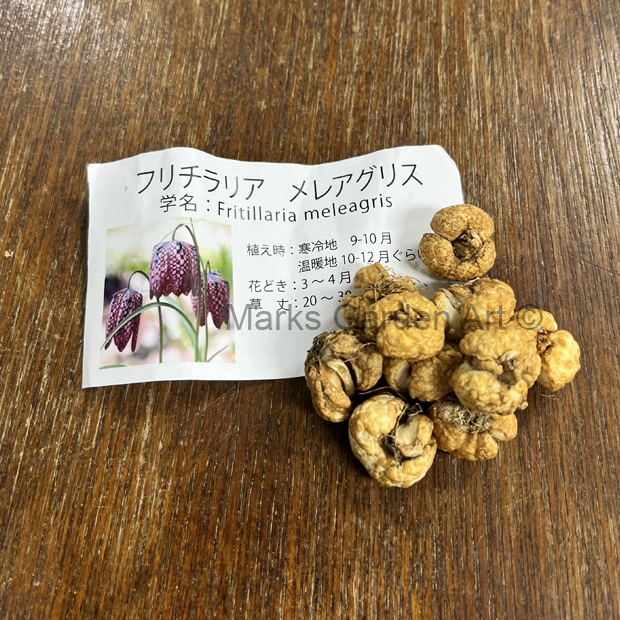 フリチラリア　メレアグリス
学名：Fritillaria meleagris
植え時：寒冷地　9-10月
温暖地 10-12月ぐら
花どき：3～4月
草　丈：20～30
Marks Garden Art ©